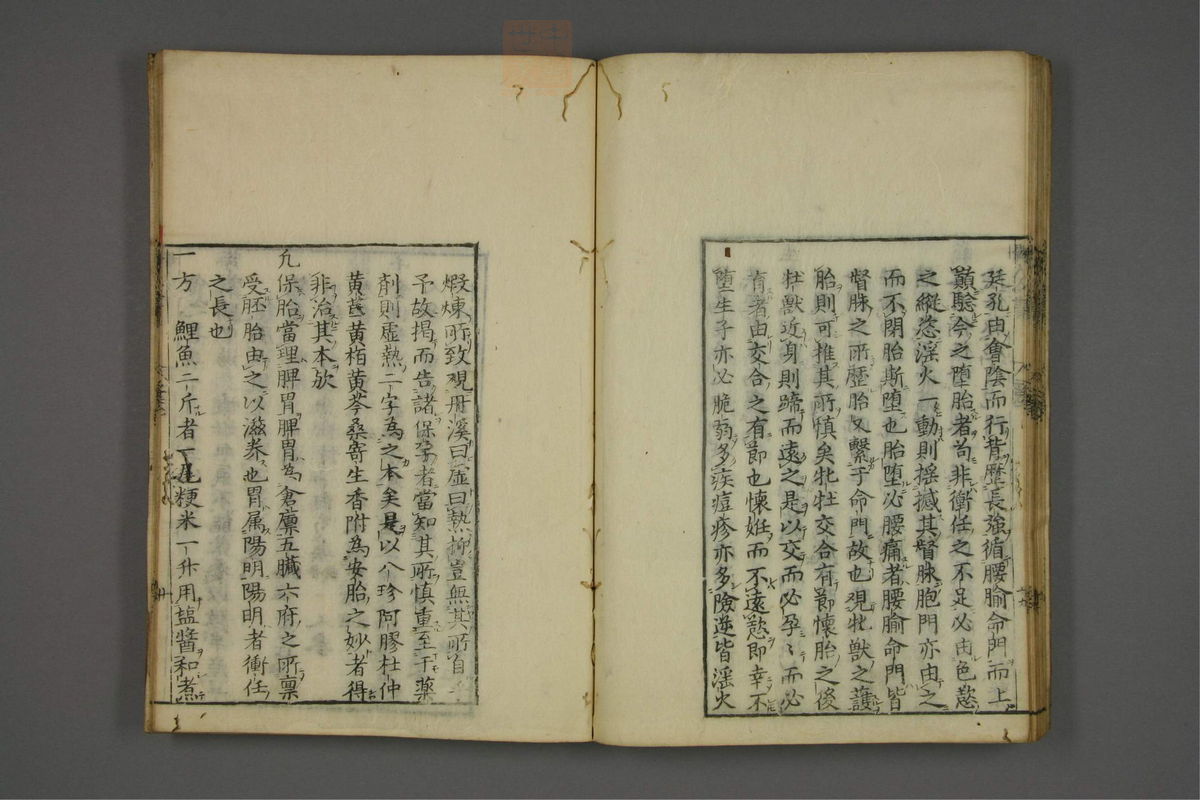 廷孔由會陰而行背歷長強循腰腧命門而上
巔驗今之墮胎者苟非衝任之不足必由色慾
之縱恣淫火一動則揺撼其督脉胞門亦由之
而不閉胎斯墮也胎墮必腰痛者腰腧命門皆
督脉之所歷胎又繫于命門故也覌牝獸之護
胎則可推其所慎矣牝牡交合有節懐胎之後
牡獸近身則蹄而遠之是以交而必孕〻而必
育者由交合之有節也懐妊而不遠慾即幸不
墮生子亦必脆弱多疾痘疹亦多險逆皆淫火
煆煉所致覌丹溪曰虛曰熱抑豈無其所自
予故揭而告諸保孕者當知其所慎重至于薬
剤則虛熱二字為之本矣是以八珍阿膠杜仲
黄芪黄栢黄芩桑寄生香附為安胎之妙者得
非治其本欤
凢保胎當理脾胃脾胃為倉廩五臟六府之所稟
受胚胎由之以滋养也胃属陽明陽明者衝任
之長也
一方 鯉魚二斤者一尾粳米一升用塩醬和煮